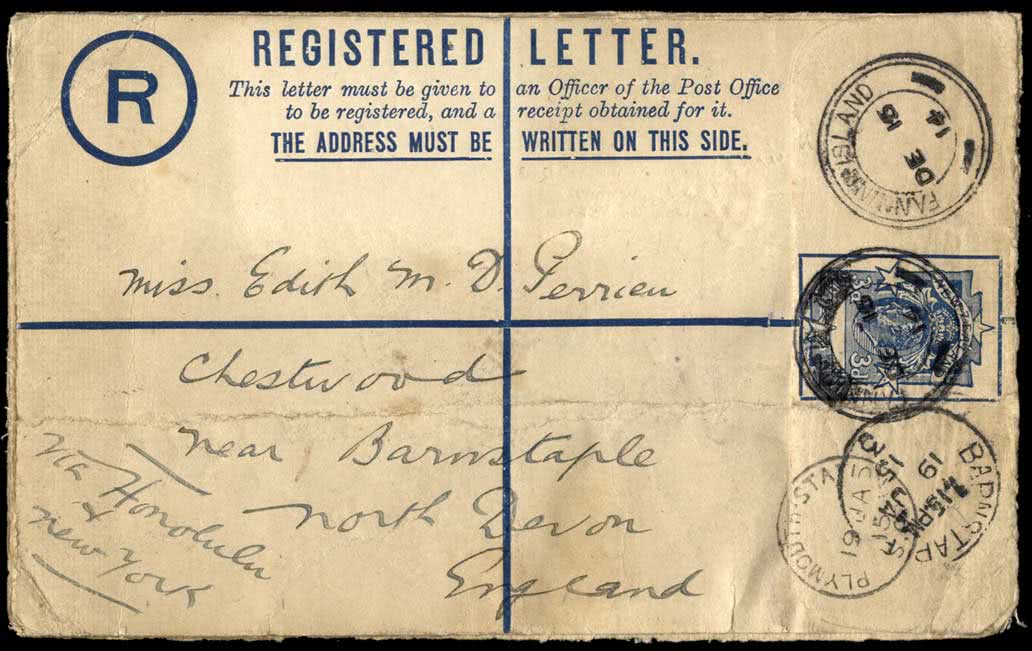 R
REGISTERED LETTER.
This letter must be given to an Officer of the Post Office
to be registered, and a receipt obtained for it.
THE ADDRESS MUST BE WRITTEN ON THIS SIDE.
FANNING ISLAND
DE 15
14
Miss. Edith M. D. Perrien
Chestwood
near Barnstaple
North Devon
England
via Honolulu
&
New York
NEW ZEALAND
3D 3D
BARNSTAP
19 JA
15
PLYMOUTH STA
19 JA 15